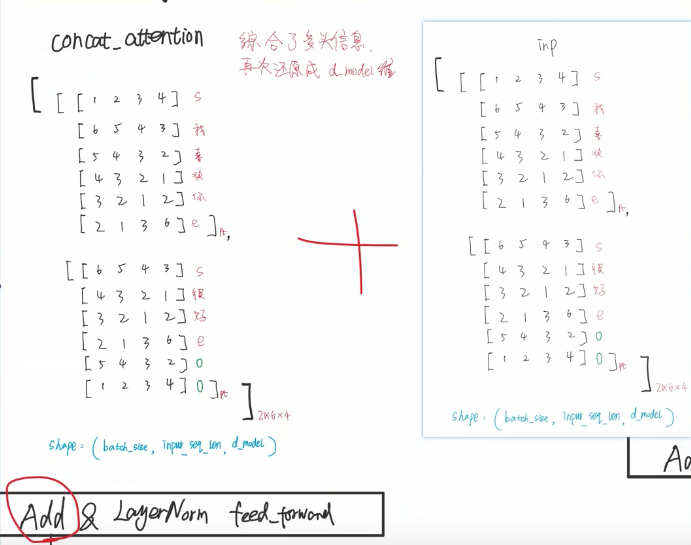 concat_attention
综合了多头信息,
再次还原成 d_model 维
[ [ [ 1 2 3 4 ] S
[ 6 5 4 3 ] 我
[ 5 4 3 2 ] 喜
[ 4 3 2 1 ] 欢
[ 3 2 1 2 ] 你
[ 2 1 3 6 ] e ]pt,
[ [ 6 5 4 3 ] S
[ 4 3 2 1 ] 很
[ 3 2 1 2 ] 好
[ 2 1 3 6 ] e
[ 5 4 3 2 ] 0
[ 1 2 3 4 ] 0 ]pt
] 2×6×4
shape: ( batch_size, input_seq_len, d_model )
+
inp
[ [ [ 1 2 3 4 ] S
[ 6 5 4 3 ] 我
[ 5 4 3 2 ] 喜
[ 4 3 2 1 ] 欢
[ 3 2 1 2 ] 你
[ 2 1 3 6 ] e ]pt,
[ [ 6 5 4 3 ] S
[ 4 3 2 1 ] 很
[ 3 2 1 2 ] 好
[ 2 1 3 6 ] e
[ 5 4 3 2 ] 0
[ 1 2 3 4 ] 0 ]pt
] 2×6×4
shape: ( batch_size, input_seq_len, d_model )
Add & LayerNorm feed_forward